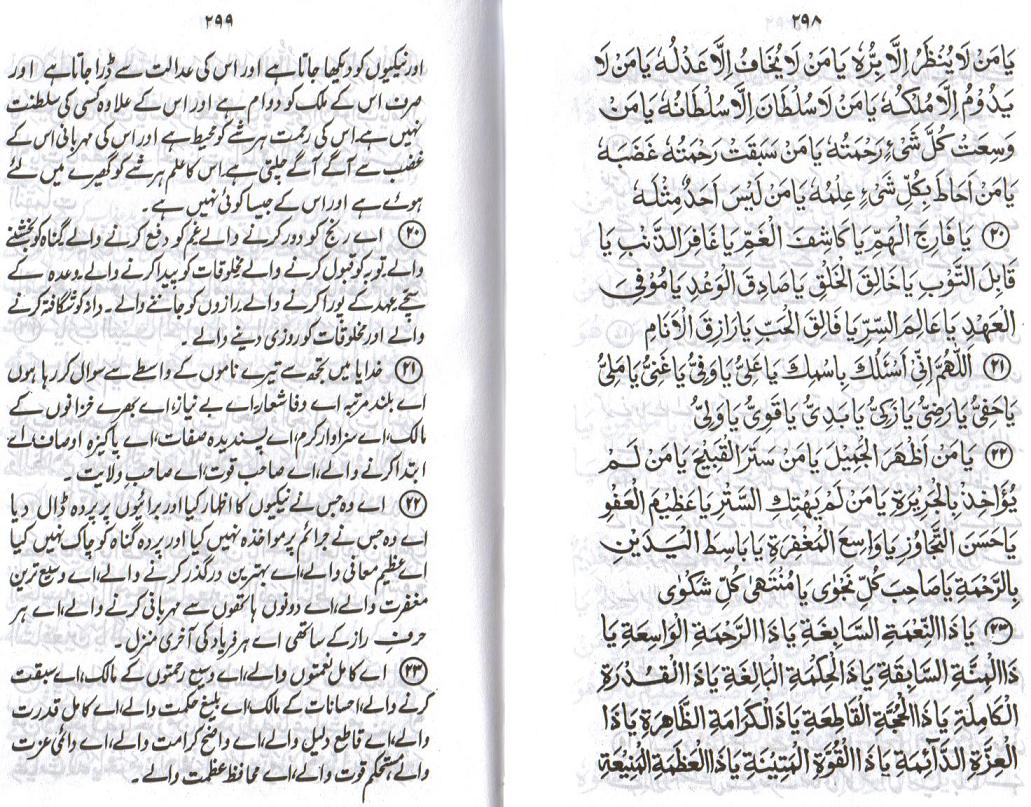 ٢٩٨
يَا مَنْ لَا يُنْظَرُ اِلَّا بِرُّهٗ يَا مَنْ لَا يُخَافُ اِلَّا عَدْلُهٗ يَا مَنْ لَا
يَدُوْمُ اِلَّا مُلْكُهٗ يَا مَنْ لَا سُلْطَانَ اِلَّا سُلْطَانُهٗ يَا مَنْ
وَسِعَتْ كُلَّ شَيْءٍ رَحْمَتُهٗ يَا مَنْ سَبَقَتْ رَحْمَتُهٗ غَضَبَهٗ
يَا مَنْ اَحَاطَ بِكُلِّ شَيْءٍ عِلْمُهٗ يَا مَنْ لَيْسَ اَحَدٌ مِثْلَهٗ
(٢٠) يَا فَارِجَ الْهَمِّ يَا كَاشِفَ الْغَمِّ يَا غَافِرَ الذَّنْبِ يَا
قَابِلَ التَّوْبِ يَا خَالِقَ الْخَلْقِ يَا صَادِقَ الْوَعْدِ يَا مُوْفِيَ
الْعَهْدِ يَا عَالِمَ السِّرِّ يَا فَالِقَ الْحَبِّ يَا رَازِقَ الْاَنَامِ
(٢١) اَللّٰهُمَّ اِنِّيْ اَسْئَلُكَ بِاسْمِكَ يَا عَلِيُّ يَا وَفِيُّ يَا غَنِيُّ يَا مَلِيُّ
يَا حَفِيُّ يَا رَضِيُّ يَا زَكِيُّ يَا بَدِيُّ يَا قَوِيُّ يَا وَلِيُّ
(٢٢) يَا مَنْ اَظْهَرَ الْجَمِيْلَ يَا مَنْ سَتَرَ الْقَبِيْحَ يَا مَنْ لَمْ
يُؤَاخِذْ بِالْجَرِيْرَةِ يَا مَنْ لَمْ يَهْتِكِ السِّتْرَ يَا عَظِيْمَ الْعَفْوِ
يَا حَسَنَ التَّجَاوُزِ يَا وَاسِعَ الْمَغْفِرَةِ يَا بَاسِطَ الْيَدَيْنِ
بِالرَّحْمَةِ يَا صَاحِبَ كُلِّ نَجْوٰى يَا مُنْتَهٰى كُلِّ شَكْوٰى
(٢٣) يَا ذَا النِّعْمَةِ السَّابِغَةِ يَا ذَا الرَّحْمَةِ الْوَاسِعَةِ يَا
ذَا الْمِنَّةِ السَّابِقَةِ يَا ذَا الْحِكْمَةِ الْبَالِغَةِ يَا ذَا الْقُدْرَةِ
الْكَامِلَةِ يَا ذَا الْحُجَّةِ الْقَاطِعَةِ يَا ذَا الْكَرَامَةِ الظَّاهِرَةِ يَا ذَا
الْعِزَّةِ الدَّآئِمَةِ يَا ذَا الْقُوَّةِ الْمَتِيْنَةِ يَا ذَا الْعَظَمَةِ الْمَنِيْعَةِ
٢٩٩
اور نیکیوں کو دیکھا جاتا ہے اور اس کی عدالت سے ڈرا جاتا ہے اور
صرف اس کے ملک کو دوام ہے اور اس کے علاوہ کسی کی سلطنت
نہیں ہے، اس کی رحمت ہر شے کو محیط ہے اور اس کی مہربانی اس کے
غضب سے آگے آگے چلتی ہے، اس کا علم ہر شے کو گھیرے میں لئے
ہوئے ہے اور اس کے جیسا کوئی نہیں ہے۔
(٢٠) اے رنج کو دور کرنے والے، غم کو دفع کرنے والے، گناہ کو بخشنے
والے، توبہ کو قبول کرنے والے، مخلوقات کو پیدا کرنے والے، وعدہ کے
سچے، عہد کے پورا کرنے والے، رازوں کو جاننے والے۔ دانہ کو شگافتہ کرنے
والے اور مخلوقات کو روزی دینے والے۔
(٢١) خدایا میں تجھ سے تیرے ناموں کے واسطے سے سوال کر رہا ہوں
اے بلند مرتبہ اے وفا شعار، اے بے نیاز، اے بھرے خزانوں کے
مالک، اے سزاوار کرم، اے پسندیدہ صفات، اے پاکیزہ اوصاف، اے
ابتدا کرنے والے، اے صاحب قوت، اے صاحب ولایت۔
(٢٢) اے وہ جس نے نیکیوں کا اظہار کیا اور برائیوں پر پردہ ڈال دیا
اے وہ جس نے جرائم پر مواخذہ نہیں کیا اور پردہ گناہ کو چاک نہیں کیا
اے عظیم معافی والے، اے بہترین درگذر کرنے والے، اے وسیع ترین
مغفرت والے، اے دونوں ہاتھوں سے مہربانی کرنے والے، اے ہر
حرف راز کے ساتھی اے ہر فریاد کی آخری منزل۔
(٢٣) اے کامل نعمتوں والے، اے وسیع رحمتوں کے مالک، اے سبقت
کرنے والے، احسانات کے مالک، اے بلیغ حکمت والے، اے کامل قدرت
والے، اے قاطع دلیل والے، اے واضح کرامت والے، اے دائمی عزت
والے، مستحکم قوت والے، اے محافظ عظمت والے۔